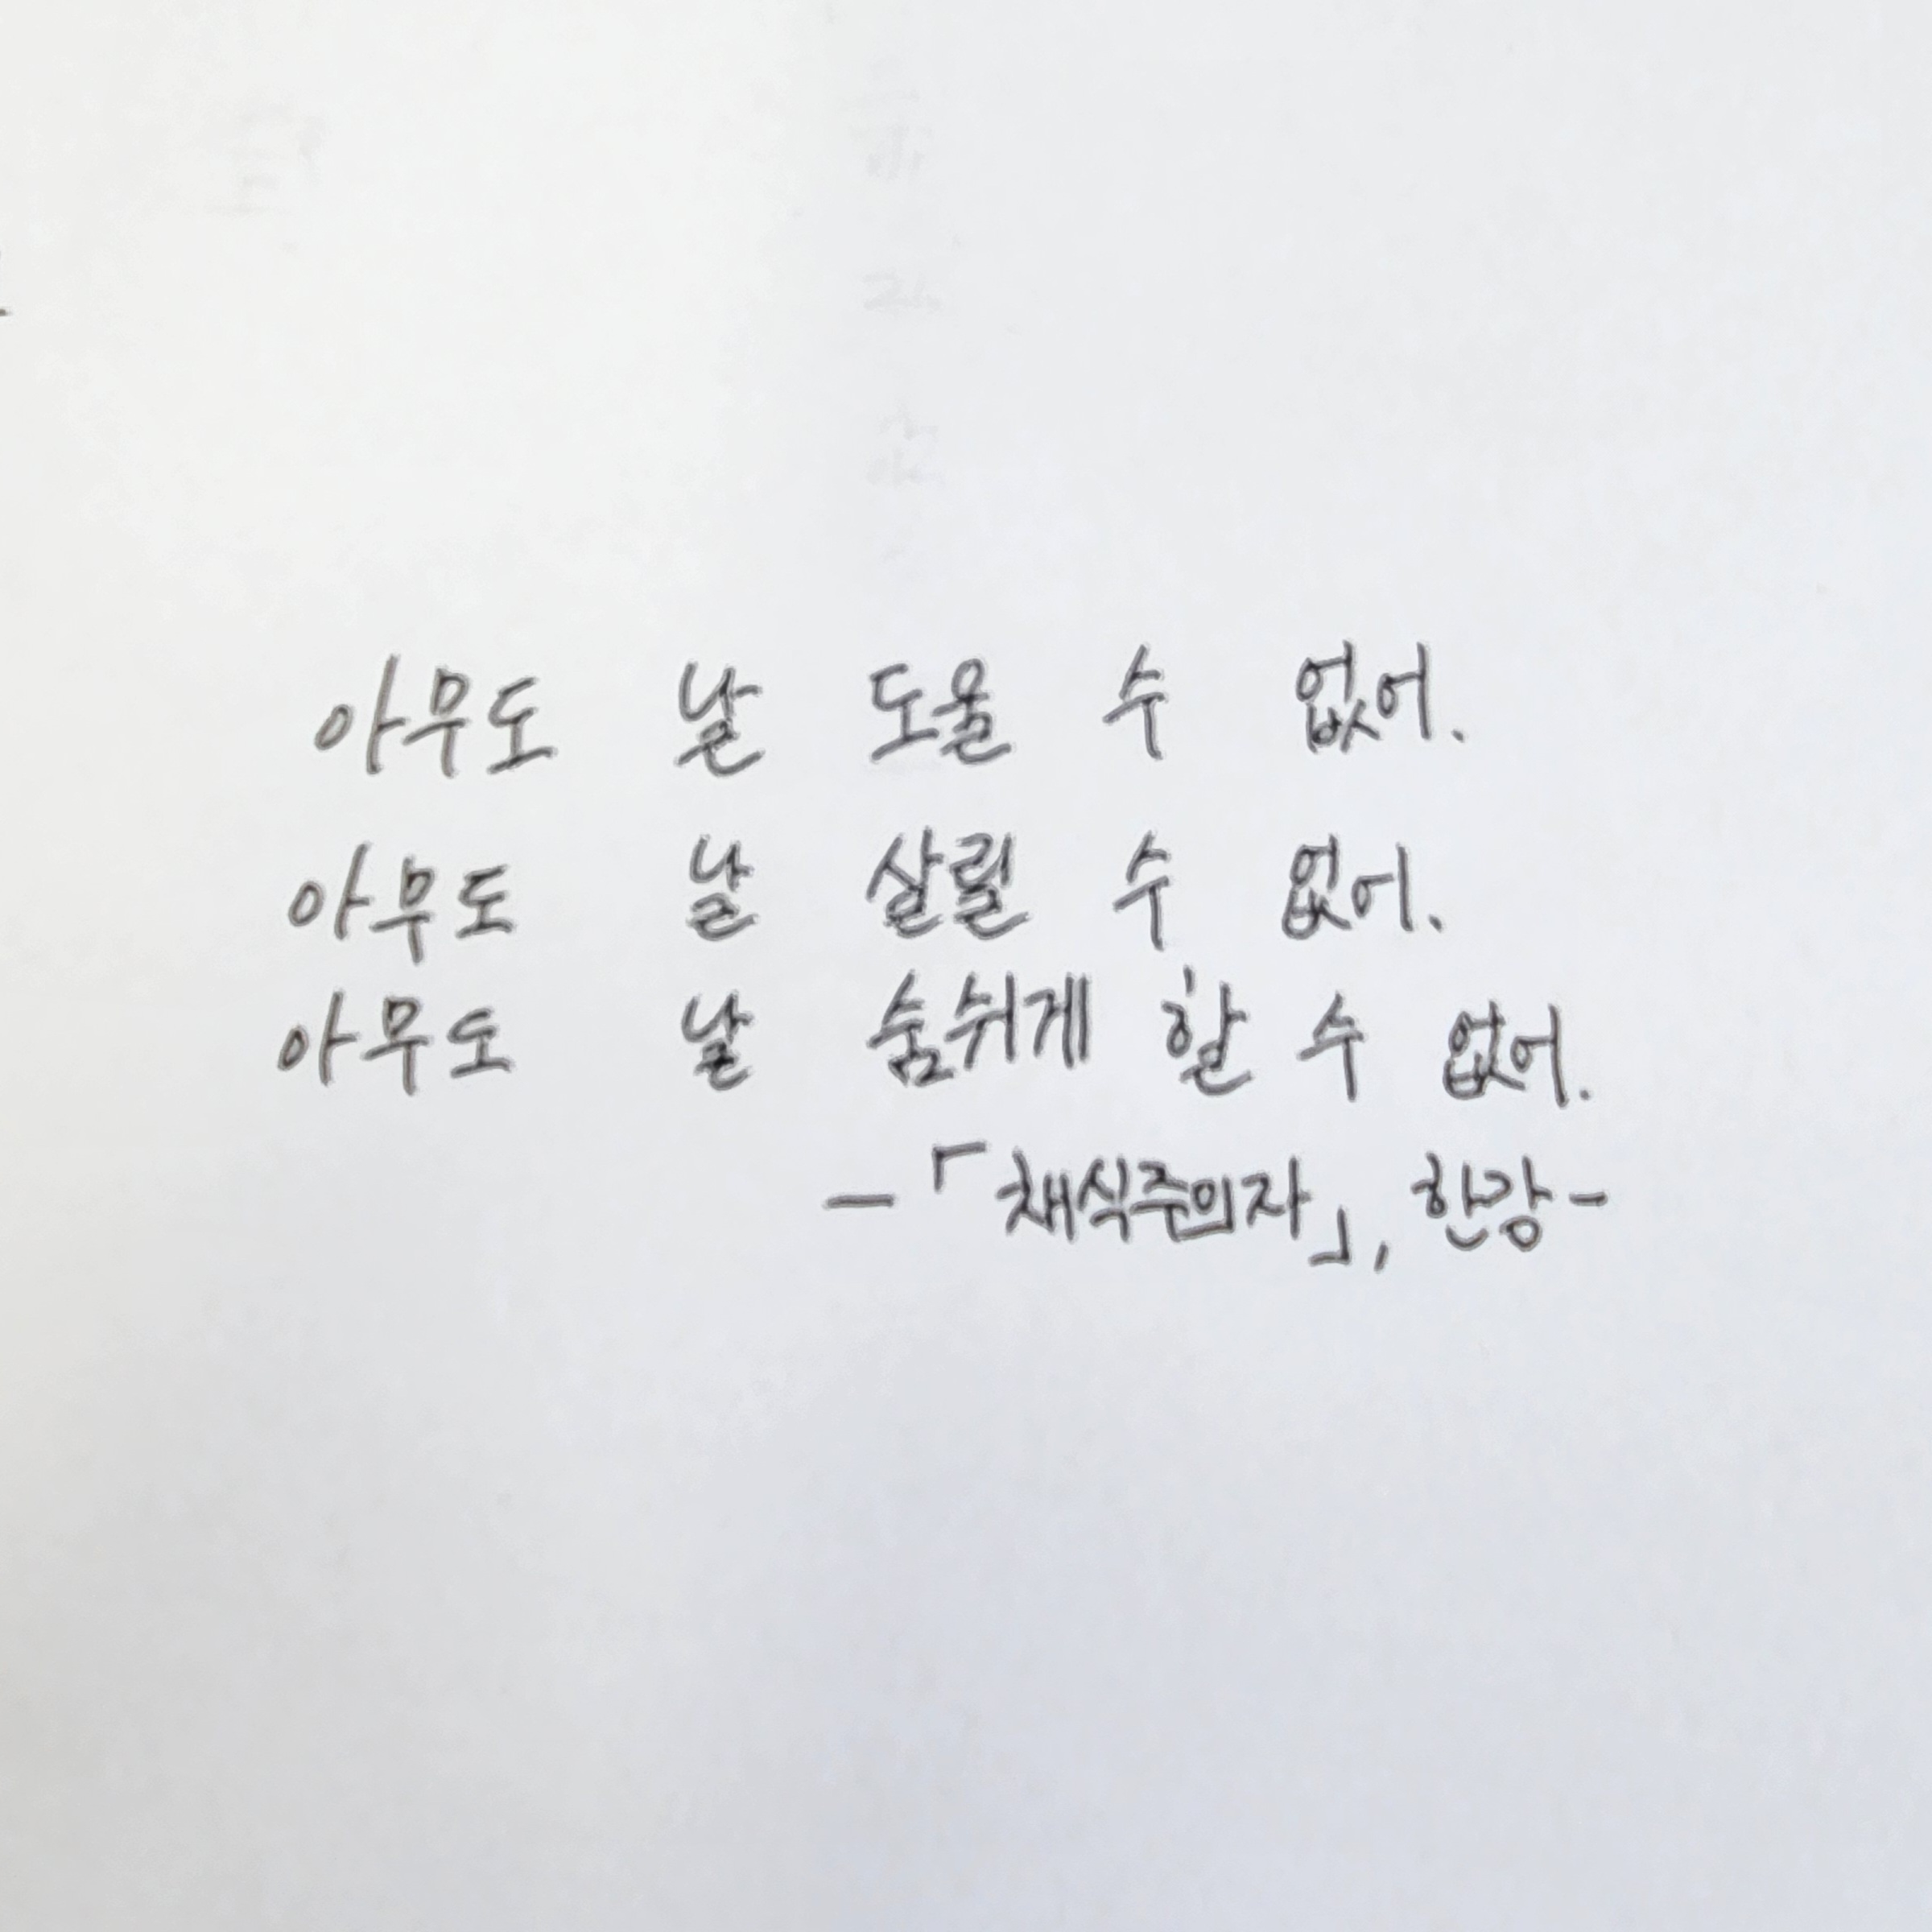 아무도 날 도울 수 없어.
아무도 날 살릴 수 없어.
아무도 날 숨쉬게 할 수 없어.
-「채식주의자」, 한강-